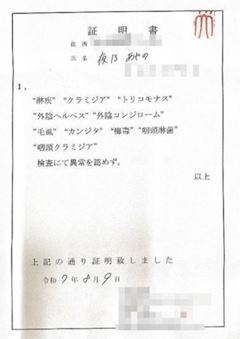 証明書
住所
氏名 夜乃あやの
1、
“淋疾” “クラミジア” “トリコモナス”
“外陰ヘルペス” “外陰コンジローム”
“毛虱” “カンジタ” “梅毒” “咽頭淋菌”
“咽頭クラミジア”
検査にて異常を認めず。
以上
上記の通り証明致しました
令和7年8月9日